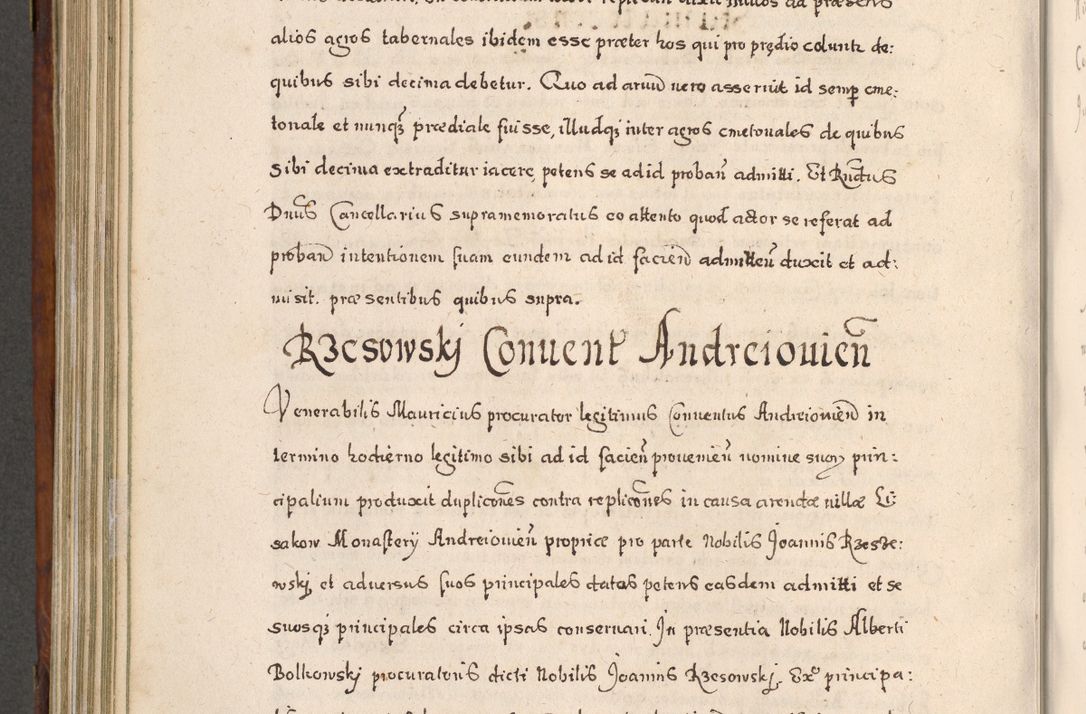 alios agros tabernales ibidem esse præter hos qui pro prędio coluntr de:
quibus sibi decima debetur. Quo ad aruū uero asseruit id semp cme:
tonale et nunqȝ prædiale fuisse, illudqȝ inter agros cmetonales de quibus
sibi decima extraditur iacere, petens se ad id proban̄ admitti. Et Rn̄dus
Dn̄us Cancellarius supramemoratus eo attento quod actor se referat ad
proban̄d intentionem suam eundem ad id facien̄d admitten̄ duxit et ad:
misit. præsentibus quibus supra.
Rzesowskj Conuent Andreiouien̄
Venerabilis Mauricius procurator legitimus Conuentus Andreiouien̄ in
termino hodierno legitimo sibi ad id facien̄ prouenien̄ nomine suoꝝ prin:
cipalium produxit duplicōnes contra replicōnes in causa arendæ uillæ Li:
sakow Monastery Andreiouien̄ propriæ pro parte Nobilis Joannis Rzesze:
wskj, et aduersus suos principales datas petens easdem admitti et se
suosqȝ principales circa ipsas conseruari. In præsentia Nobilis Alberti
Bolkowskj procuratoris dicti Nobilis Joannis Rzesowskj. Ex principa: